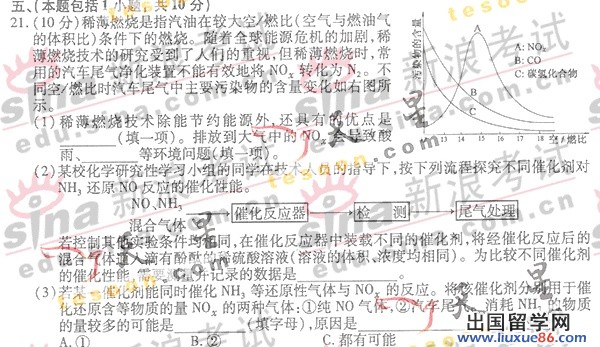 五、(本题包括1小题，共10分)
21.(10分)稀薄燃烧是指汽油在较大空/燃比(空气与燃油气
的体积比)条件下的燃烧。随着全球能源危机的加剧，稀
薄燃烧技术的研究受到了人们的重视，但稀薄燃烧时，常
用的汽车尾气净化装置不能有效地将NOx转化为N₂。不
同空/燃比时汽车尾气中主要污染物的含量变化如右图所
示。
污染物的含量
A: NOx
B: CO
C: 碳氢化合物
A
B
C
13 14 15 16 17 18 空/燃比
(1)稀薄燃烧技术除能节约能源外，还具有的优点是
(填一项)。排放到大气中的NOx会导致酸
雨、 等环境问题(填一项)。
(2)某校化学研究性学习小组的同学在技术人员的指导下，按下列流程探究不同催化剂对
NH₃还原NO反应的催化性能。
NO、NH₃
混合气体
催化反应器
检 测
尾气处理
若控制其他实验条件均相同，在催化反应器中装载不同的催化剂，将经催化反应后的
混合气体 滴有酚酞的稀硫酸溶液(溶液的体积、浓度均相同)。为比较不同催化剂
的催化性能，需要 记录的数据是 。
(3)若某 催化剂能同时催化NH₃等还原性气体与NOx的反应。将该催化剂分别用于催
化还原含等物质的量NOx的两种气体:①纯NO气体，②汽车尾 。消耗NH₃的物质
的量较多的可能是 (填字母)，原因是
A. ① B. ② C. 都有可能
sina 新浪考试
天星
tesoon.com
出国留学网
www.liuxue86.com